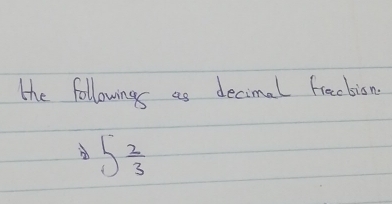 the followings as decimal fraction.
5 2/3